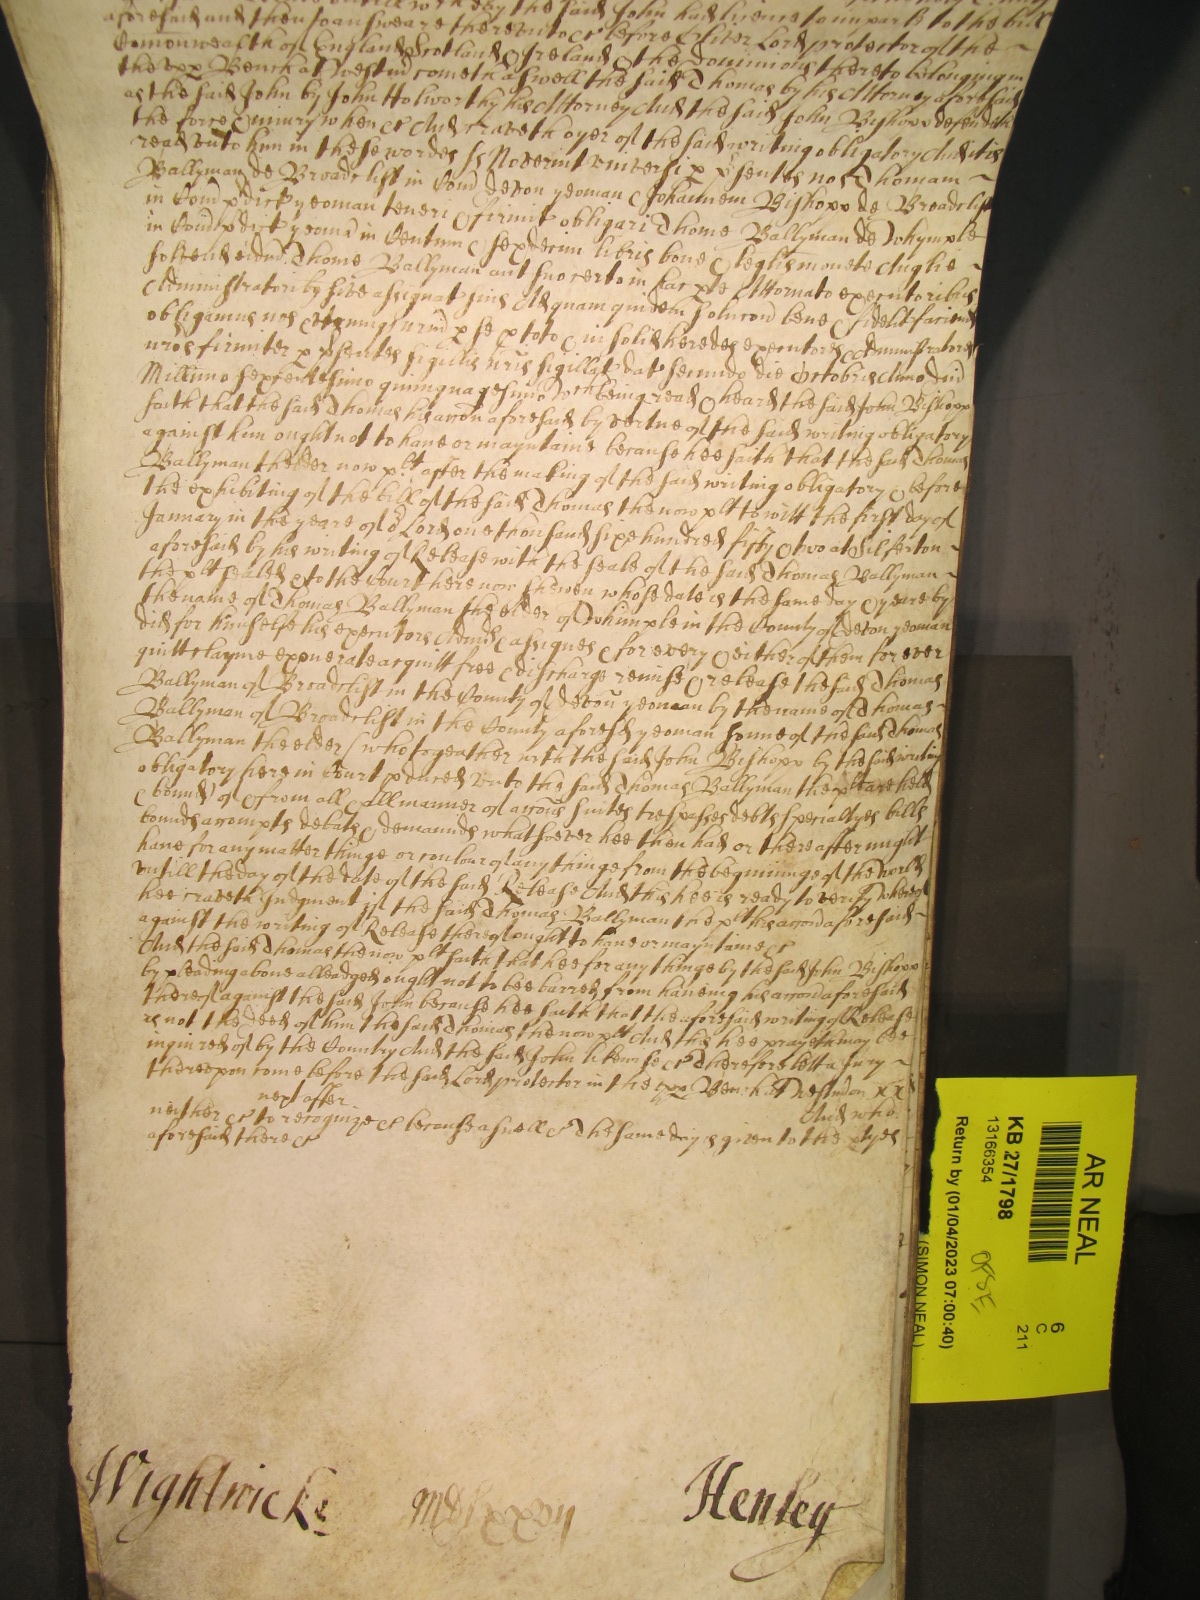 aforesaid and then to answeare thereunto &c before Oliver Lord protector of the
Comonwealth of England Scotland & Ireland & the dominions thereto belonging in
the upp Bench at Westm cometh aswell the said Thomas by his Attorney aforesaid
as the said John by John Holworthy his Attorney And the said John Bishopp defendeth
the force & iniury when &c And craveth oyer of the said writing obligatory And it is
read unto him in these wordes ss Noverint universi p psentes nos Thomam
Ballyman de Broadclist in Com devon yeoman & Johannem Bishopp de Broadclist
in Com pdict yeoman teneri & firmit obligari Thome Ballyman de Whymple
in Com pdict yeoma in Centum & sexdecim libris bone & legtis monete Anglie
solvend eidm Thome Ballyman aut suo certo in hac pte Attornato executoribus
Administratoribz sive assignat suis Ad quam quidem solucon bene & fidelit faciend
obligamus nos & utrumqz nrm p se p toto & in solid heredes executores & Administratores
nros firmiter p psentes sigillis nris sigillat dat secundo die Octobris Anno dni
Millimo sexcentesimo quinquagesimo Wch being read & heard the said John Bishopp
saith that the said Thomas his accon aforesaid by vertue of the said writing obligatory
against him ought not to have or mayntaine because hee saith that the said Thomas
Ballyman thelder now plt after the making of the said writing obligatory & before
the exhibiting of the bill of the said Thomas the now plt to witt the first day of
January in the yeare of or Lord one thousand sixe hundred fifty & two at Silferton
aforesaid by his writing of Release with the seale of the said Thomas Ballyman
the plt sealed & to the Court here now shewen whose date is the same day & yeare by
the name of Thomas Ballyman the elder of Whimple in the County of devon yeoman
did for himselfe his executors Admrs & assignes & for every & either of them for ever
quitt clayme exonerate acquitt free & discharge remise & release the said Thomas
Ballyman of Broadclist in the County of devon yeoman by the name of Thomas
Ballyman of Broadclist in the County aforesd yeoman sonne of the said Thomas
Ballyman the elder (who togeather with the said John Bishopp by the said writing
obligatory here in Court pduced unto the said Thomas Ballyman the plt are held
& bound) of & from all & all manner of accons suites trespasses debts specialtyes bills
bounds accompts debats & demaunds whatsoever hee then had or thereafter might
have for any matter thinge or coulour of any thinge from the beginninge of the world
untill the day of the date of the said Release And this hee is ready to verify Whereof
hee craveth Judgment if the said Thomas Ballyman the plt his accon aforesaid
against the writing of Release thereof ought to have or mayntaine &c
And the said Thomas the now plt saith that hee for any thinge by the said John Bishopp
by pleading above alleadged ought not to bee barred from haveing his accon aforesaid
thereof against the said John because hee saith that the aforesaid writing of Release
is not the deed of him the said Thomas the now plt And this hee prayeth may bee
inquired of by the Country And the said John likewise &c Therefore lett a Jury
thereupon come before the said Lord protector in the upp Bench at Westm on
next after And who
neither &c to recognize &c because aswell &c The same day is given to the ptyes
aforesaid there &c
Wightwicke
Henley
AR NEAL
KB 27/1798
13166354
Return by (01/04/2023 07:00:40)
(SIMON NEAL)
6
C
211